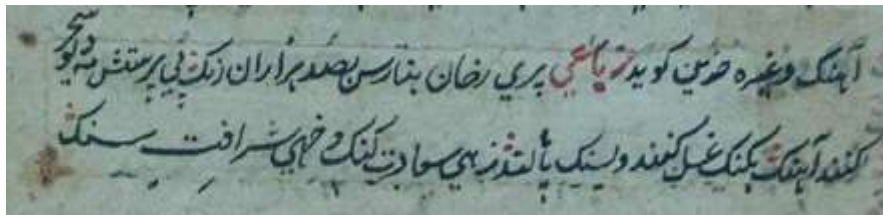 آهنگ وغیره حزین کوید رباعی پری رخان بنارس بصد هزاران رنک پی پرستش مهدیو سحر
کنند آهنک بکنک غسل کنند و بسنک پا زهی سعادت کنک و خهی شرافت سنک